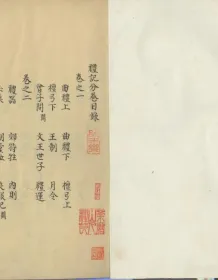 禮記分卷目錄
卷之一
曲禮上 曲禮下 檀弓上
檀弓下 王制 月令
曾子問 文王世子 禮運
卷之二
禮器 郊特牲 內則